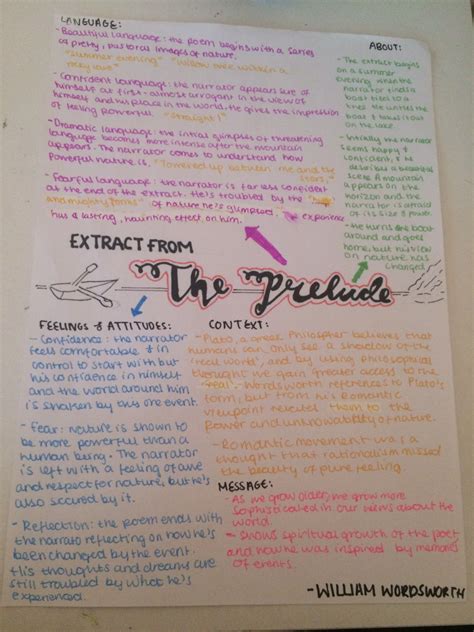 LANGUAGE:
- Beautiful language: the poem begins with a series
of pretty, pastoral images of nature.
"summer evening" "willow tree within a
rocky cave"
- Confident language: the narrator appears sure of
himself at first - almost arrogant in the view of
himself and his place in the world. He gives the impression
of feeling powerful. "straight I"
- Dramatic language: the initial glimpses of threatening
language becomes more intense after the mountain
appears. The narrator comes to understand how
powerful nature is. "Towered up between me and the
stars"
- Fearful language: the narrator is far less confident
at the end of the extract. He's troubled by the "huge
and mighty forms" of nature he's glimpses. experience
has a lasting, haunting effect on him.
ABOUT:
- The extract begins
on a summer
evening when the
narrator finds a
boat tied to a
tree. He unties the
boat & takes it out
on the lake.
- Initially the narrator
seems happy &
confident, & he
describes a beautiful
scene. A mountain
appears on the
horizon and the
narrator is afraid
of its size & power.
- He turns the boat
around and goes
home, but his view
on nature has
changed.
EXTRACT FROM
The Prelude
FEELINGS & ATTITUDES:
- Confidence: the narrator
feels comfortable & in
control to start with but
his confidence in himself
and the world around him
is shaken by this one event.
- Fear: nature is shown to
be more powerful than a
human being. The narrator
is left with a feeling of awe
and respect for nature, but he's
also scared by it.
- Reflection: the poem ends with
the narrator reflecting on how he's
been changed by the event.
His thoughts and dreams are
still troubled by what he's
experienced.
CONTEXT:
- Plato, a Greek Philospher believes that
humans can only see a shadow of the
'real world', and by using philosophical
thought we gain greater access to the
'real'. Wordsworth references to Plato's
form, but from his Romantic
viewpoint relates them to the
power and unknowability of nature.
- Romantic movement was a
thought that rationalism missed
the beauty of pure feeling.
MESSAGE:
- As we grow older, we grow more
sophisticated in our views about the
world.
- Shows spiritual growth of the poet
and how he was inspired by memories
of events.
- WILLIAM WORDSWORTH